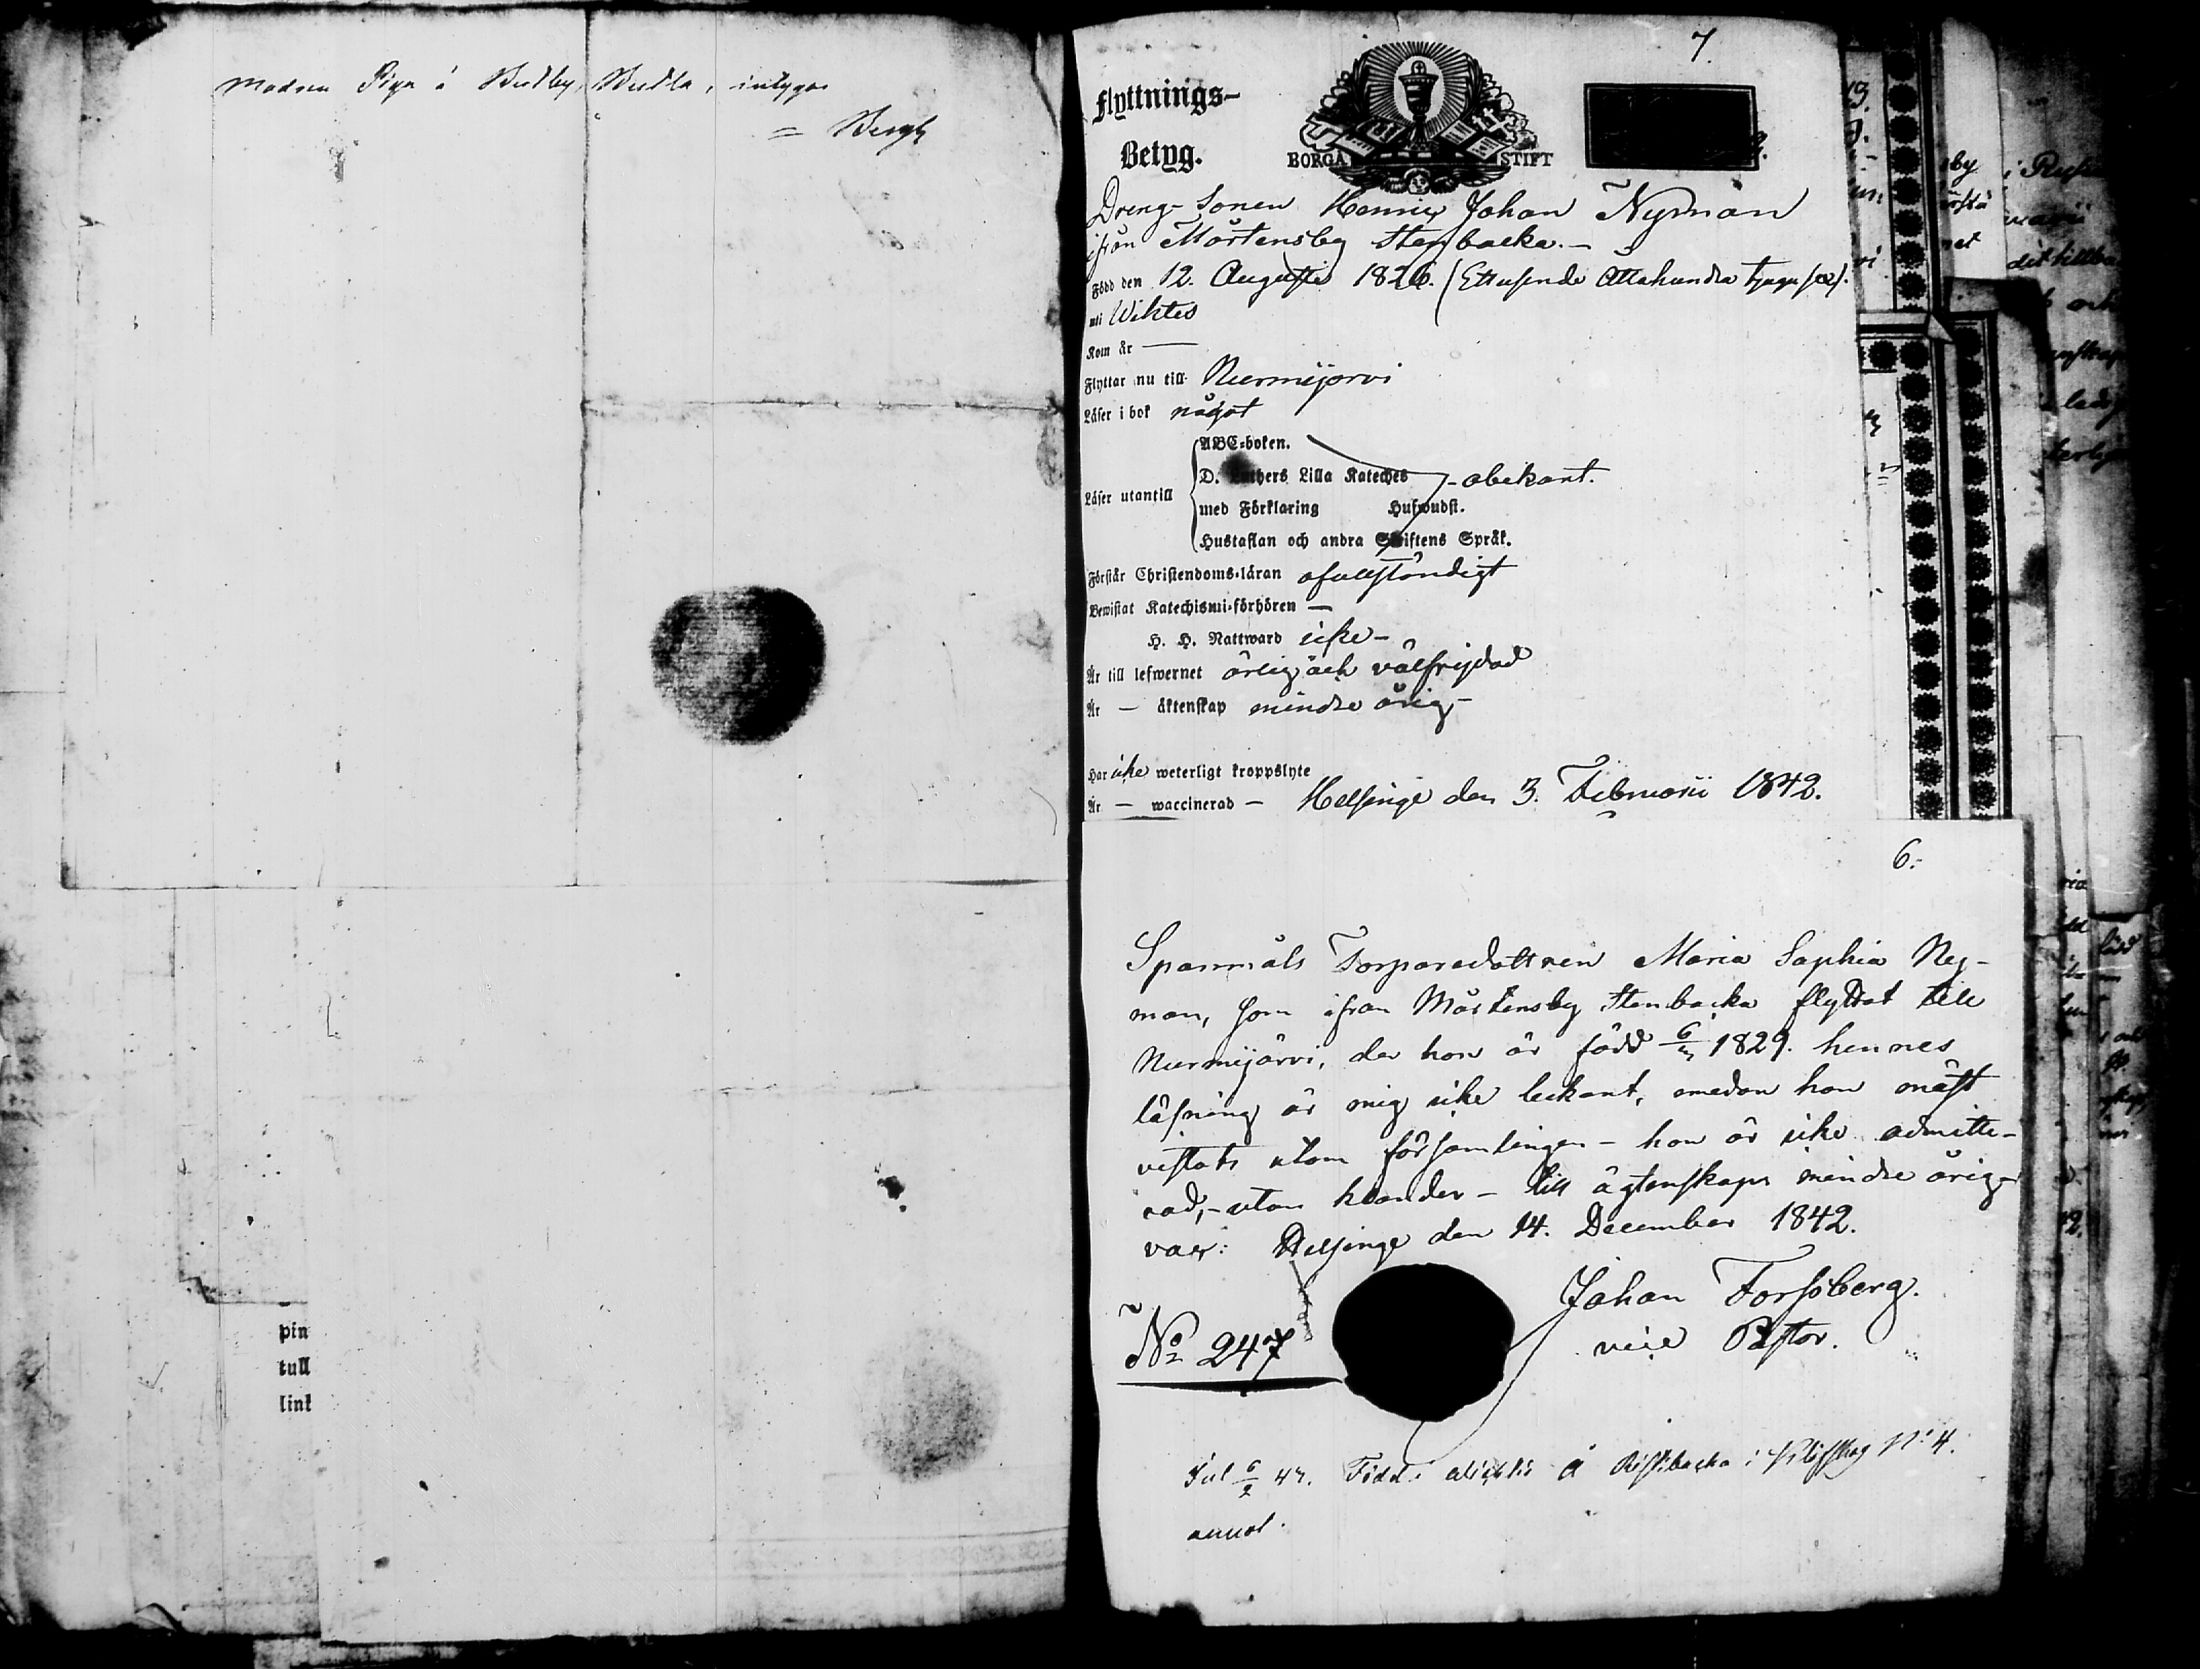 modren Piga å
intygar
= Bergh
pin
tull
link
7.
Flyttnings-
Betyg.
BORGÅ STIFT
Dreng-Sonen Henric Johan Nyman
ifrån Mårtensby Stenbacka.-
Född den 12. Augusti 1826. (Ettusende Åttahundra tjugusex).
uti Wichtis
Kom år —
Flyttar nu till Nurmijervi
Läser i bok något
ABC-boken.
D. Luthers Lilla Kateches - obekant.
Läser utantill
med Förklaring Hufwudst.
Hustaflan och andra Skriftens Språk.
Förstår Christendoms-läran ofullständigt
Bewistat Katechismi-förhören —
H. H. Nattward icke -
Är till lefwernet ärlig och välfrejdad
Är — äktenskap mindre årig -
Har icke weterligt kroppslyte
Är — waccinerad — Helsinge den 3. Februarii 1842.
6.
Spanmåls Torparedottren Maria Sophia Ny-
man, som ifrån Mårtensby Stenbacka flyttat till
Nurmijärvi, der hon är född 6/3 1829. hennes
läsning är mig icke bekant, emedan hon mäst
vistats utom församlingen - hon är icke admitte-
rad, - utan klander - till ägtenskaps mindre årig -
vac: Helsinge den 14. December 1842.
Johan Forssberg.
vice Pastor.
No 247
Född i å i No 4.
annot.